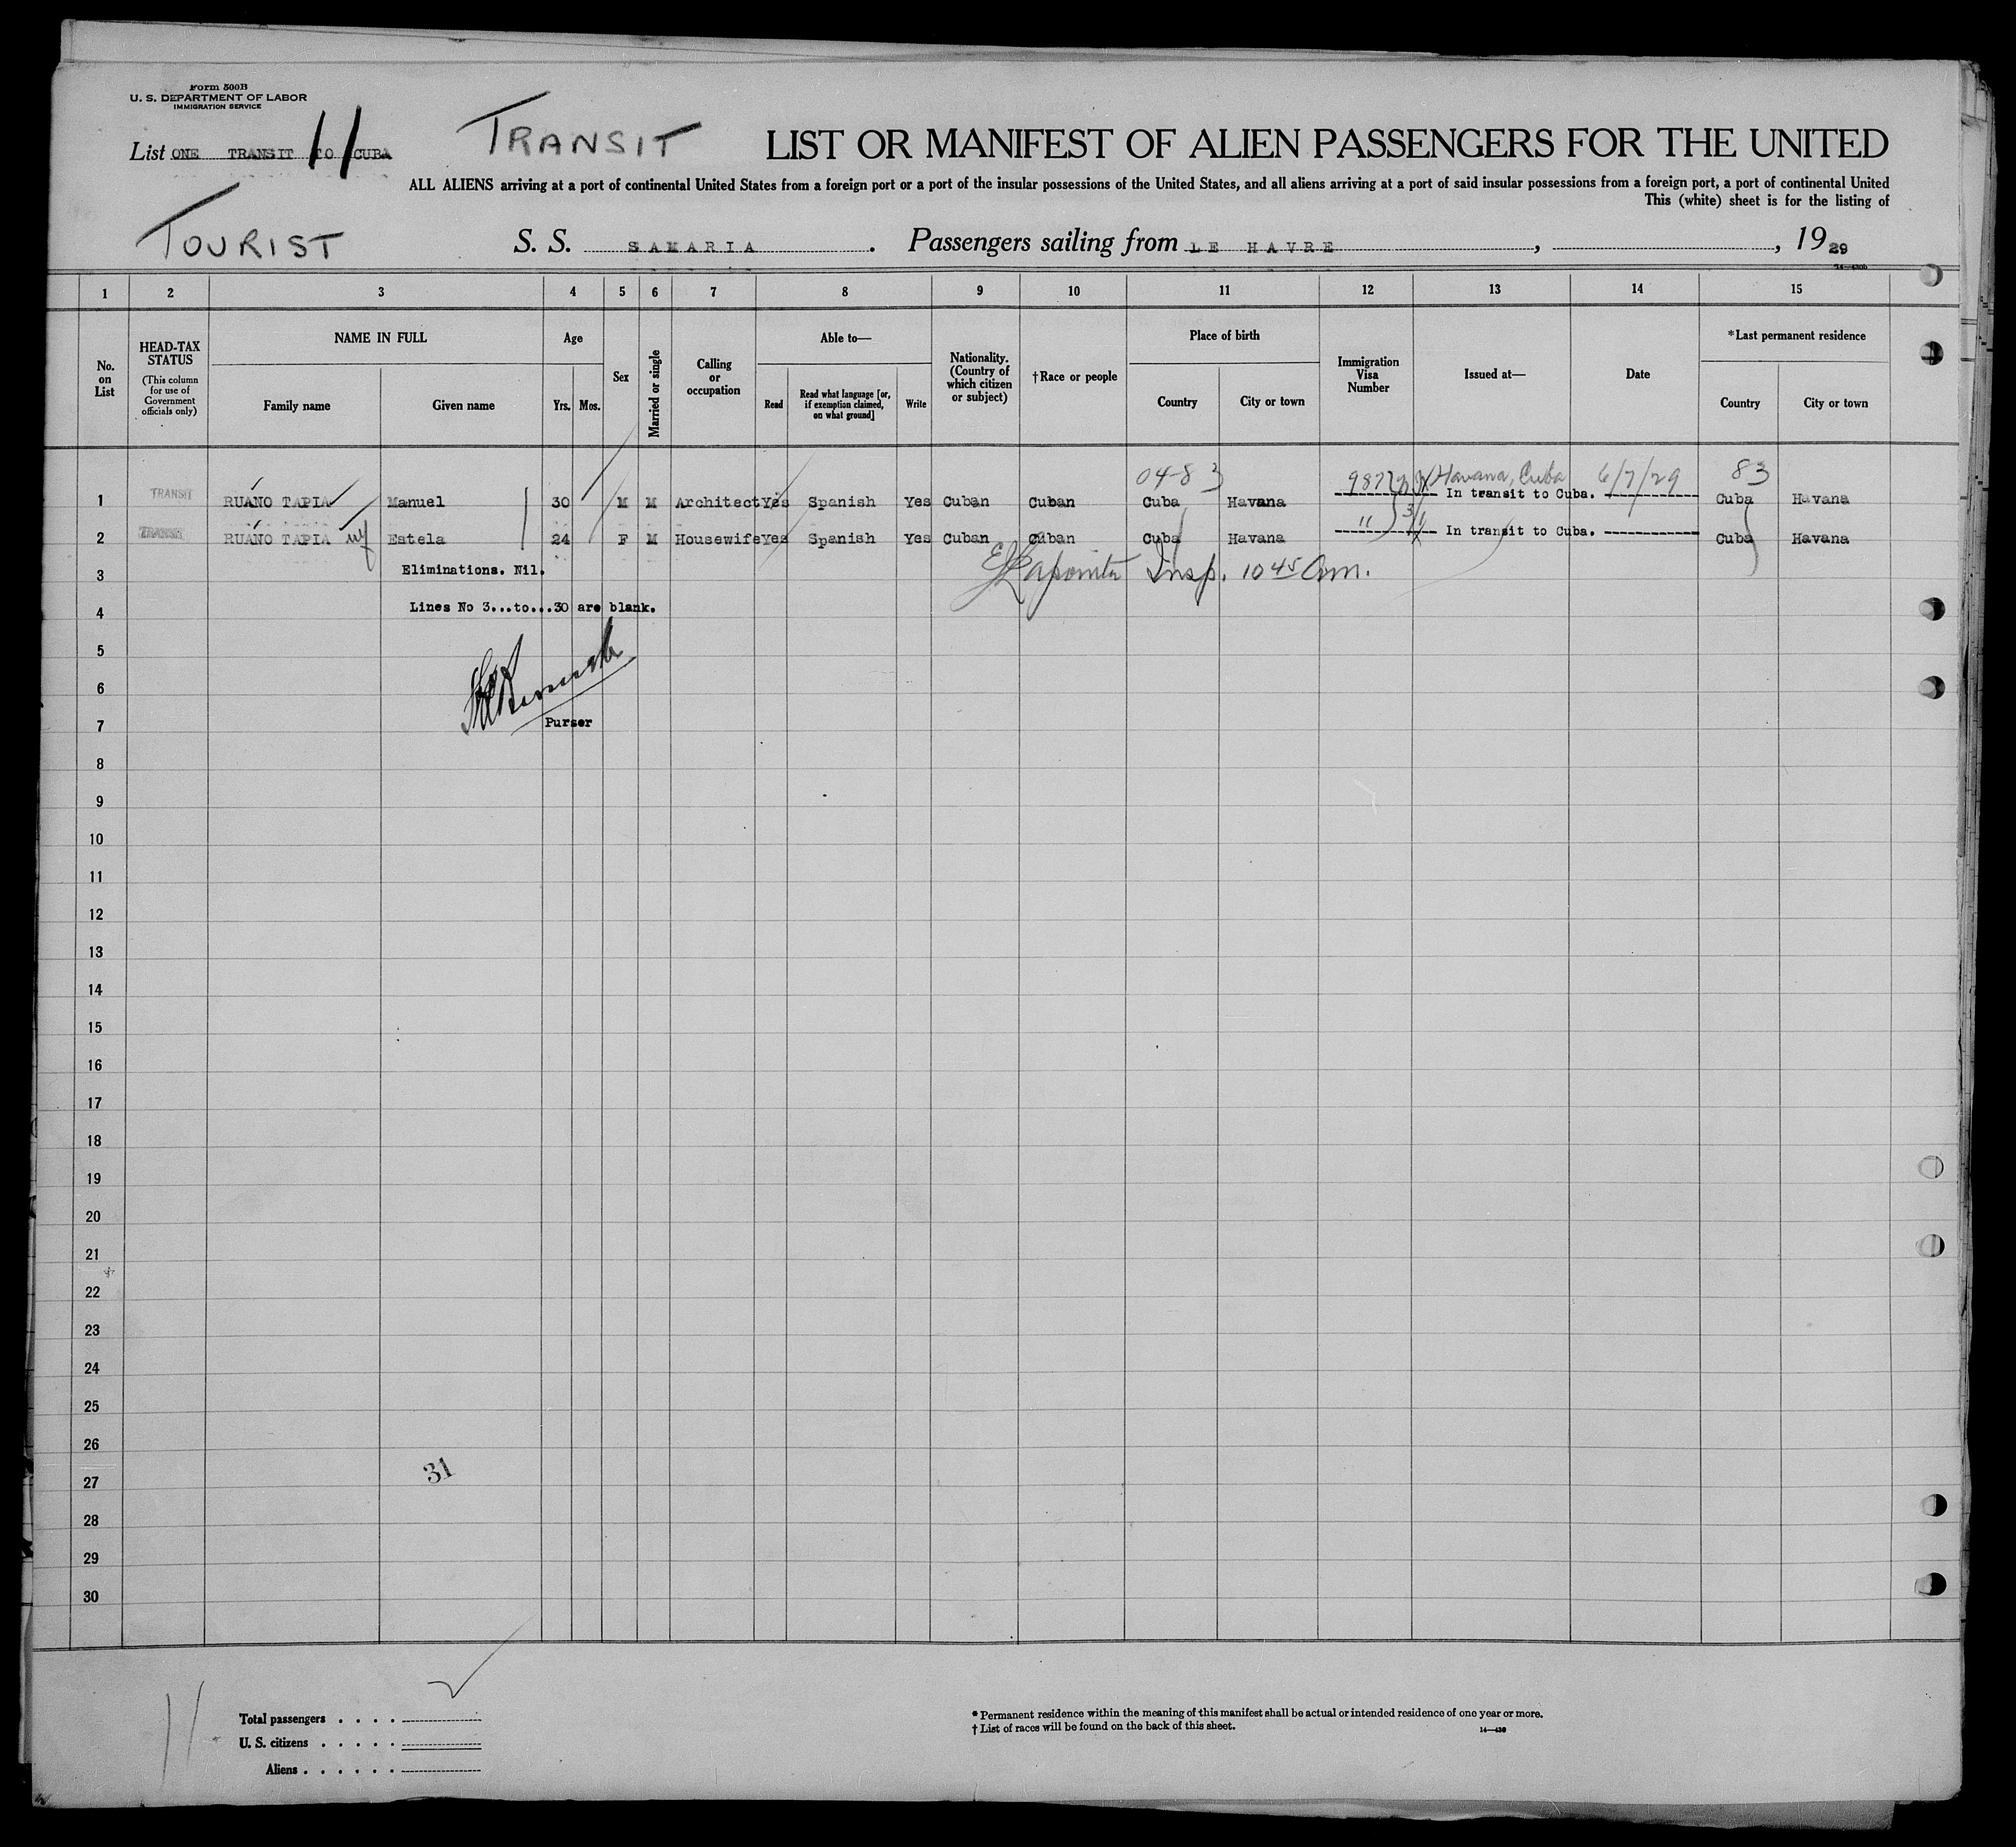 Form 500B
U. S. DEPARTMENT OF LABOR
IMMIGRATION SERVICE
List ONE TRANSIT TO CUBA
11
TRANSIT
LIST OR MANIFEST OF ALIEN PASSENGERS FOR THE UNITED
ALL ALIENS arriving at a port of continental United States from a foreign port or a port of the insular possessions of the United States, and all aliens arriving at a port of said insular possessions from a foreign port, a port of continental United
This (white) sheet is for the listing of
TOURIST
S. S. SAMARIA. Passengers sailing from LE HAVRE, , 1929
1 2 3 4 5 6 7 8 9 10 11 12 13 14 15
No. on List
HEAD-TAX STATUS
(This column for use of Government officials only)
NAME IN FULL
Family name Given name
Age
Yrs. Mos.
Sex
Married or single
Calling or occupation
Able to—
Read
Read what language [or, if exemption claimed, on what ground]
Write
Nationality. (Country of which citizen or subject)
†Race or people
Place of birth
Country City or town
Immigration Visa Number
Issued at—
Date
*Last permanent residence
Country City or town
04-83 987 Havana, Cuba 6/7/29 83
1 TRANSIT RUANO TAPIA Manuel 30 M M Architect Yes Spanish Yes Cuban Cuban Cuba Havana In transit to Cuba. Cuba Havana
2 TRANSIT RUANO TAPIA Estela 24 F M Housewife Yes Spanish Yes Cuban Cuban Cuba Havana " In transit to Cuba. Cuba Havana
3 Eliminations. Nil. Lapointe Insp. 10 45 Am.
4 Lines No 3...to...30 are blank.
5
6
7 Purser
8
9
10
11
12
13
14
15
16
17
18
19
20
21
22
23
24
25
26
31
27
28
29
30
11
Total passengers . . . .
U. S. citizens . . . . .
Aliens . . . . . .
* Permanent residence within the meaning of this manifest shall be actual or intended residence of one year or more.
† List of races will be found on the back of this sheet.
14—430